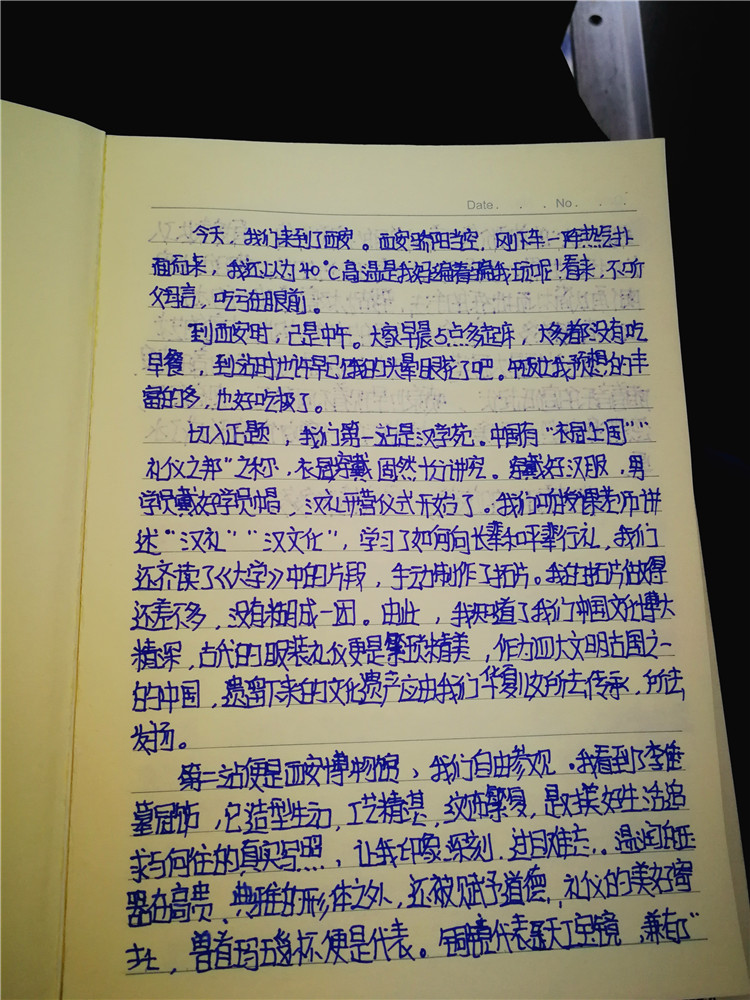 Date. . . . No. . . .
今天，我们来到了西安。西安骄阳当空，刚下车一阵热气扑
面而来，我还以为40℃高温是我妈编着骗我玩呢！看来，不听
父母言，吃亏在眼前。
到西安时，已是中午。大家早晨5点多起床，大多都没有吃
早餐，到站时也许早已饿的头晕眼花了吧。午饭比我预想的丰
富的多，也好吃极了。
切入正题，我们第一站是汉学苑。中国有“衣冠上国”“
礼仪之邦”之称，衣冠穿戴固然十分讲究。穿戴好汉服，男
学员戴好学员帽，汉礼开营仪式开始了。我们听授课老师讲
述“汉礼”“汉文化”，学习了如何向长辈和平辈行礼，我们
还齐读了《大学》中的片段，手动制作了拓片。我的拓片做得
还差不多，没有糊成一团。由此，我知道了我们中国文化博大
精深，古代的服装礼仪更是繁琐精美，作为四大文明古国之一
的中国，遗留下来的文化遗产应由我们华夏儿女所去传承，所去
发扬。
第二站便是西安博物馆，我们自由参观。我看到了李倕
墓冠饰，它造型生动，工艺精湛，纹饰繁复，是对美好生活追
求与向往的真实写照，让我印象深刻，过目难忘。温润的玉
器在高贵、典雅的形体之外，还被赋予道德、礼仪的美好寄
托，兽首玛瑙杯便是代表。铜镜代表 天 宝镜，兼有“